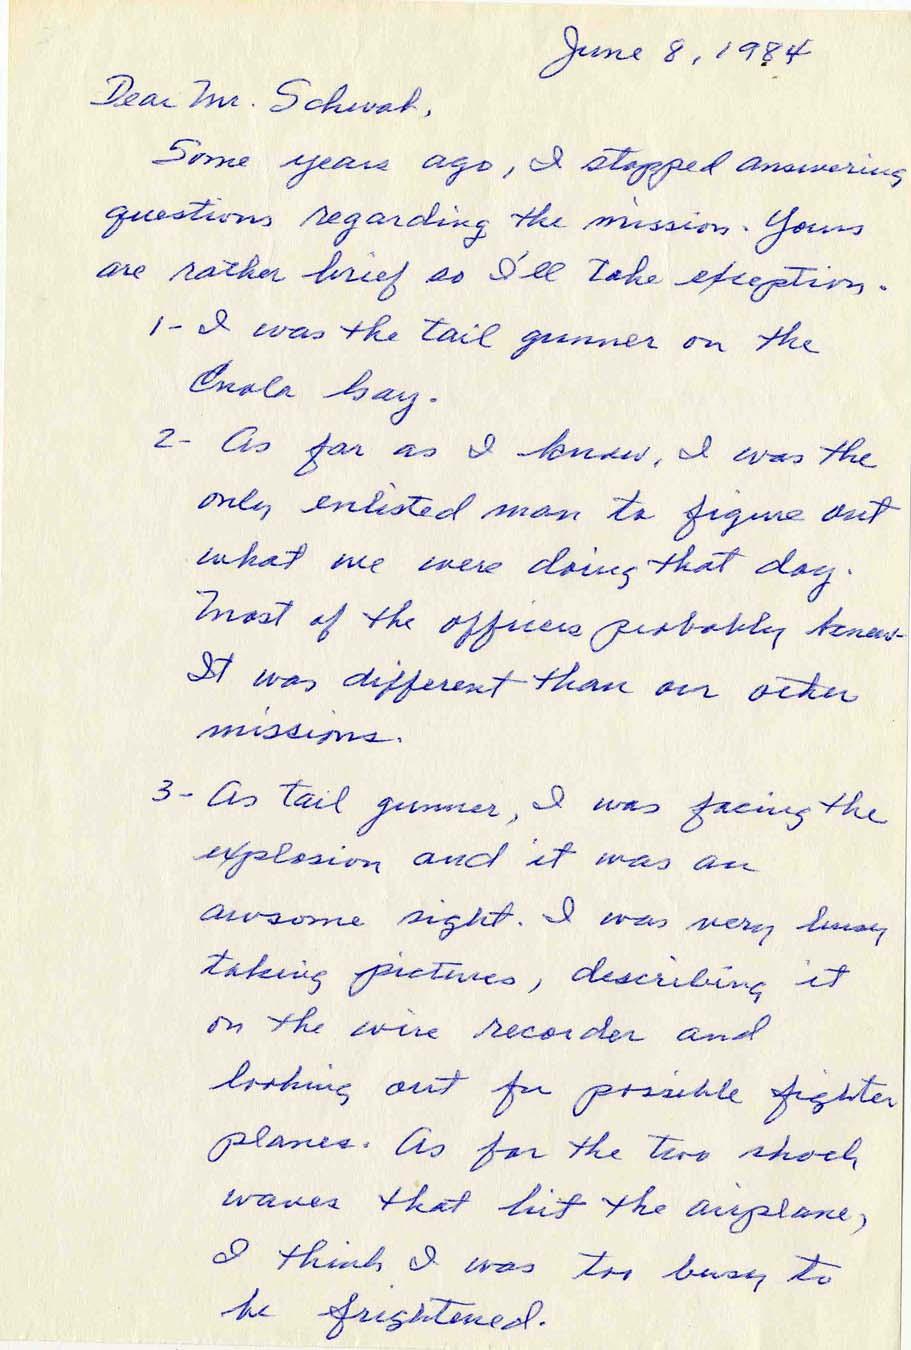 June 8, 1984
Dear Mr. Schwab,
Some years ago, I stopped answering
questions regarding the mission. Yours
are rather brief so I'll take exception.
1- I was the tail gunner on the
Enola Gay.
2- As far as I know, I was the
only enlisted man to figure out
what we were doing that day.
Most of the officers probably knew.
It was different than our other
missions.
3- As tail gunner, I was facing the
explosion and it was an
awsome sight. I was very busy
taking pictures, describing it
on the wire recorder and
looking out for possible fighter
planes. As for the two shock
waves that hit the airplane,
I think I was too busy to
be frightened.